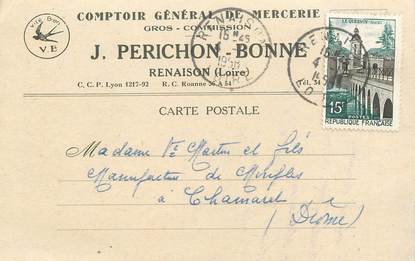 COMPTOIR GÉNÉRAL DE MERCERIE
GROS - COMMISSION
Vite Bien
V.B
J. PERICHON-BONNE
RENAISON (Loire)
C. C. P. Lyon 1217-92 R. C. Roanne 36 A 54 Tél. 54
RENAISON
15 H 45
LE QUESNOY (Nord)
15F
POSTES
RÉPUBLIQUE FRANÇAISE
CARTE POSTALE
Madame Vve Martin et fils
Manufacture de Moufles
à Chamaret
(Drôme)